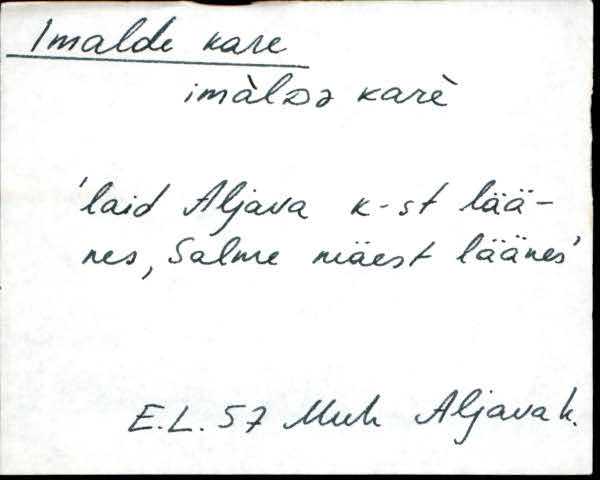 Imalde kare
imàlᴅə karè
'laid Aljava k-st lää-
nes, Salme mäest läänes'
E.L. 57 Muh Aljava k.